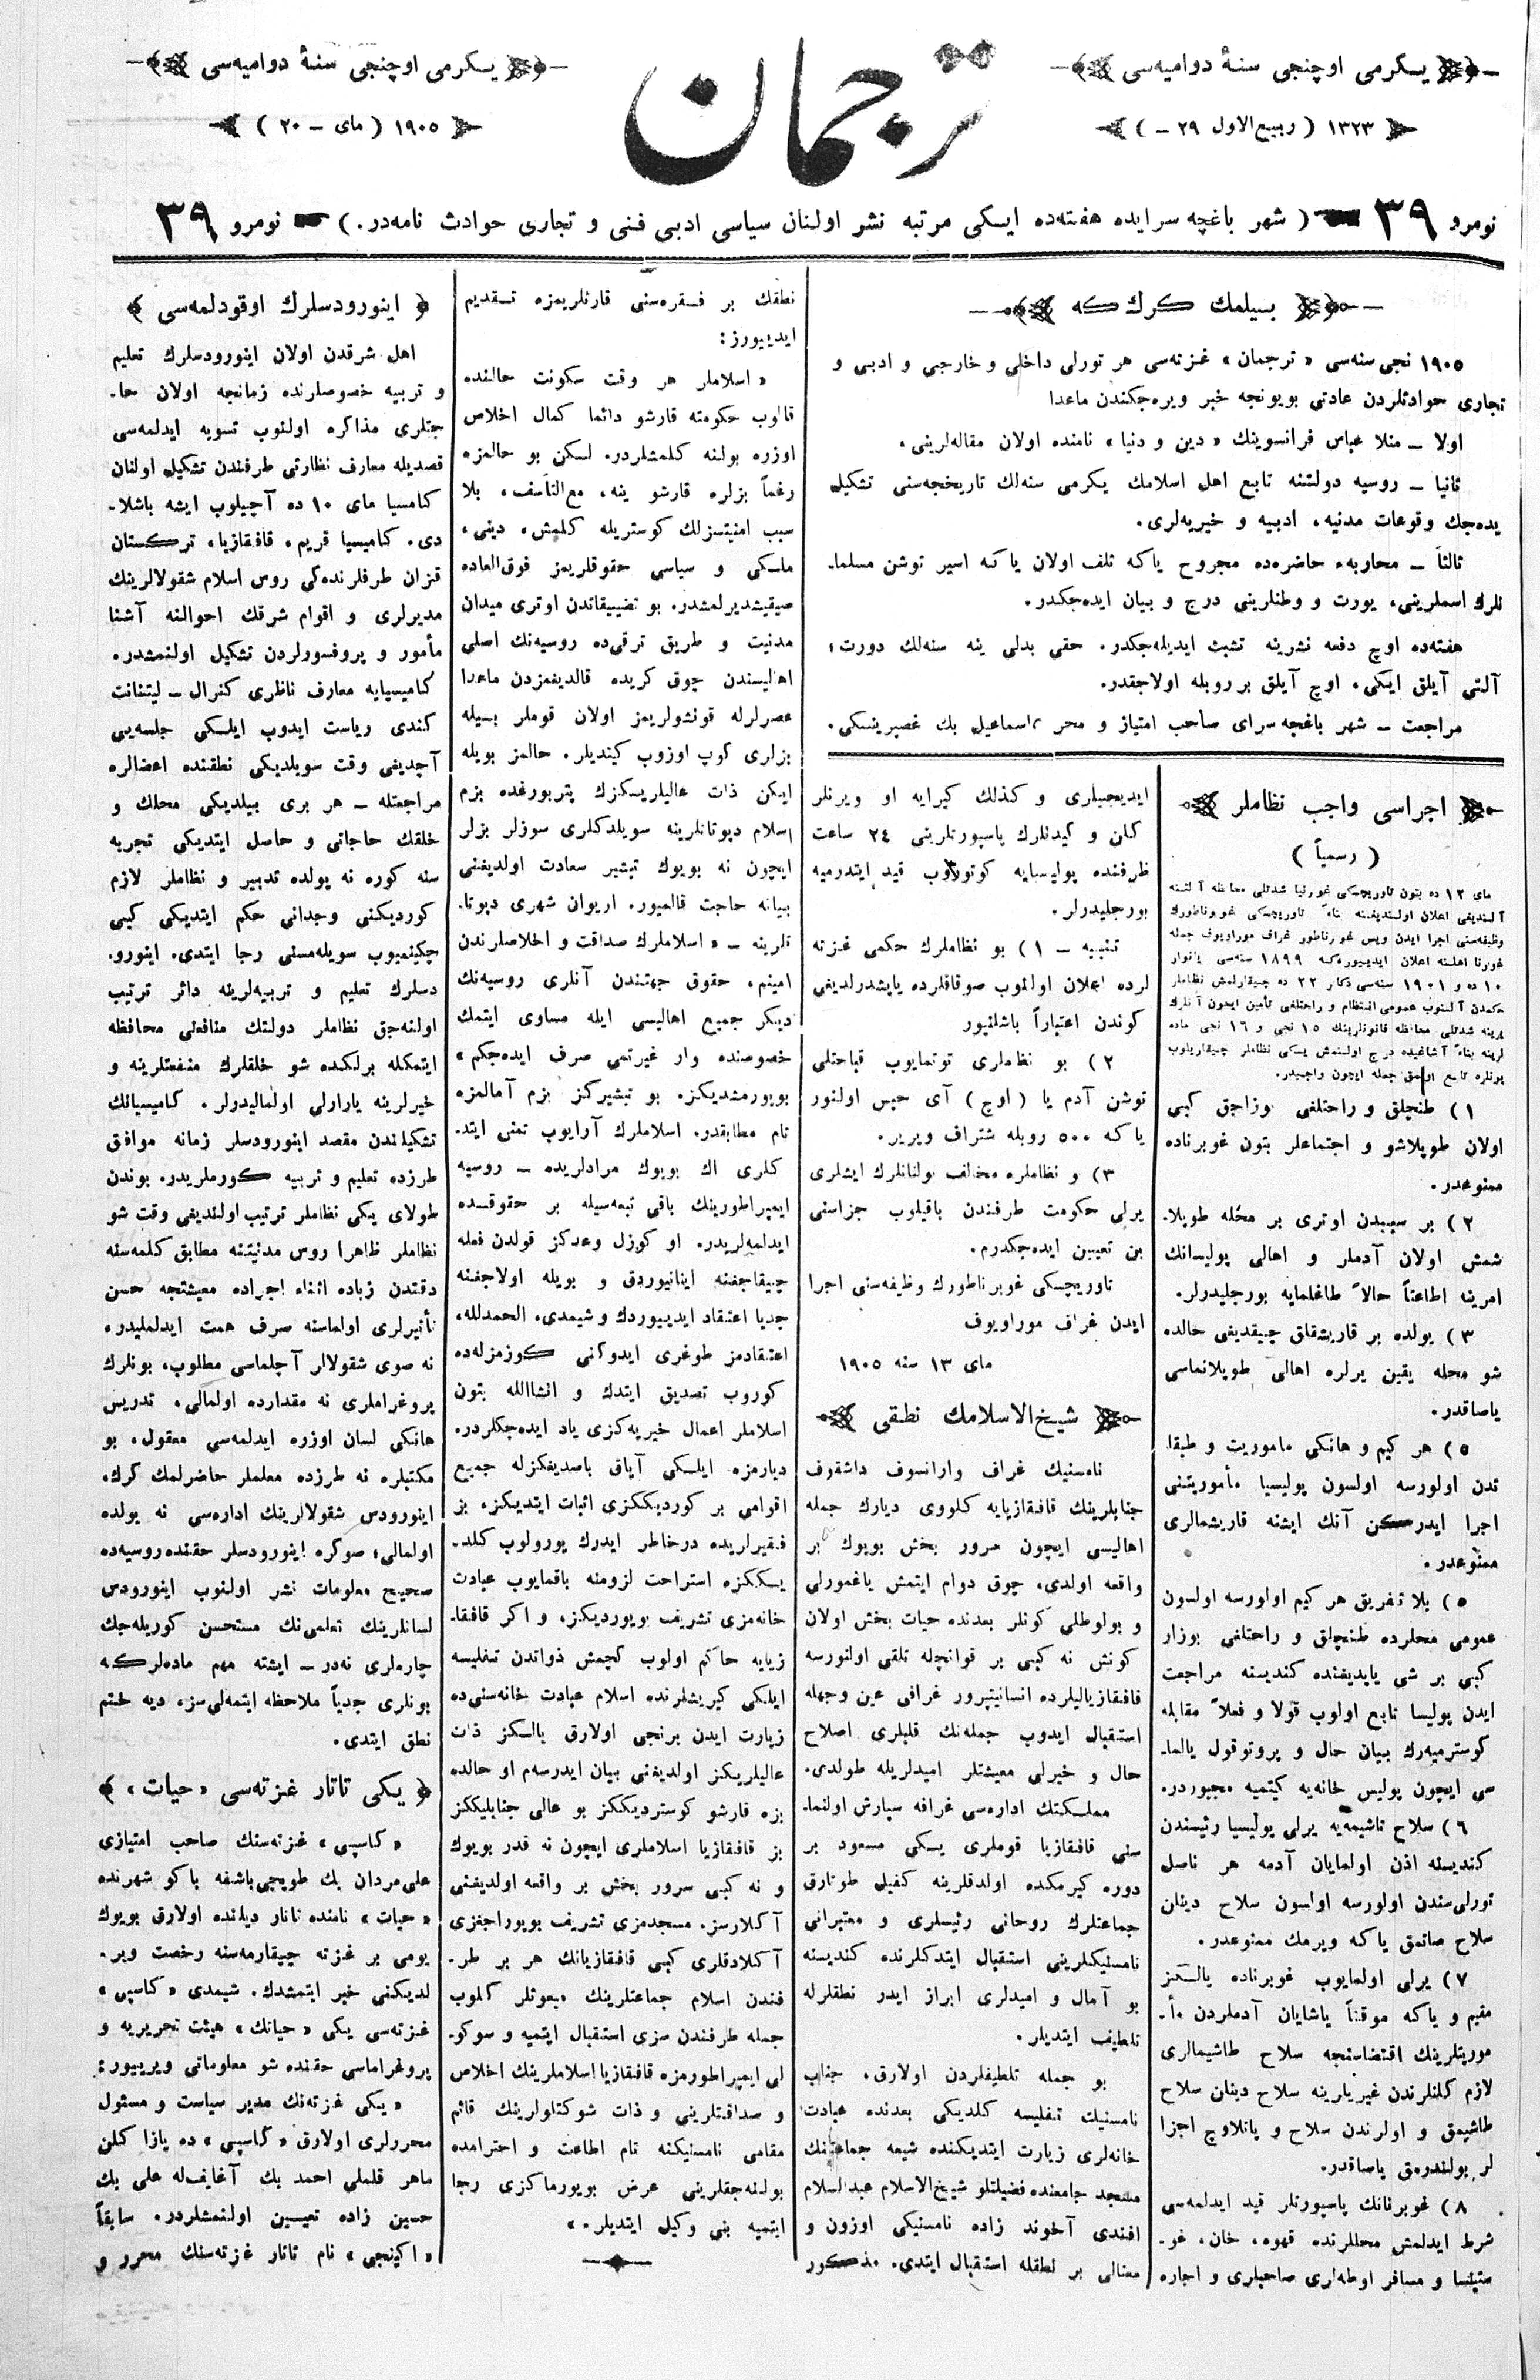 یـكرمی اوچنجی سنۀ دوامیه‌سی
۱۳۲۳ ( ربیع‌الاول ۲۹ – )
ترجمان
یـكرمی اوچنجی سنۀ دوامیه‌سی
۱۹۰۵ ( مای – ۲۰ )
نومرو ۳۹ ( شهر باغچه سرایده هفته‌ده ایـكی مرتبه نشر اولنان سیاسی ادبی فنی و تجاری حوادث نامه‌در. ) نومرو ۳۹
بـیلمك كرك كه
۱۹۰۵ نجی سنه‌سی « ترجمان » غـزته‌سی هر تورلی داخلی و خارجی و ادبـی و
تجاری حوادثلردن عادتی بویونجه خبر ویره‌جكندن ماعدا
اولا – منلا عباس فرانسوینك « دین و دنیا » نامنده اولان مقاله‌لرینی،
ثانیا – روسیه دولتنه تابع اهل اسلامك یكرمی سنه‌لك تاریخجه‌سنی تشكیل
یده‌جك وقوعات مدنیه، ادبیه و خیریه‌لری.
ثالثاً – محاوبهٔ حاضره‌ده مجروح یاكه تلف اولان یا كه اسیر توشن مسلما-
نلرك اسملرینی، یورت و وطنلرینی درج و بیان ایده‌جكدر.
هفته‌ده اوچ دفعه نشرینه تشبث ایدیله‌جكدر. حقی بدلی ینه سنه‌لك دورت؛
آلتی آیلق ایكی، اوچ آیلق بر روبله اولاجقدر.
مراجعت – شهر باغچه سرای صاحب امتیاز و محر ر اسماعیل بك غصپرینسكی.
اجراسی واجب نظاملر
( رسمیاً )
مای ۱۲ ده بتون تاوریچسكی غوبرنیا شدتلی محافظه آ لتنه
آلندیغی اعلان اولندیغنه بناءً تاوریچسكی غوبرناطورك
وظیفه‌سنی اجرا ایدن ویس غوبرناطور غراف موراویوف جمله
غوبرنا اهلنه اعلان ایدییوركه ۱۸۹۹ سنه‌سی یانوار
۱۰ ده و ۱۹۰۱ سنه‌سی دكابر ۲۲ ده چیقارلمش نظاملر
حكمدن آلنوب عمومی انتظام و راحتلغی تأمین ایچون آنلرك
یرینه شدتلی محافظه قانونلرینك ۱۵ نجی و ۱۶ نجی ماده
لرینه بناءً آشاغیده درج اولنمش یـكی نظاملر چیقاریلوب
بونلره تابع اولمق جمله ایچون واجبدر.
۱ ) طنچلق و راحتلغی بوزاجق كبی
اولان طوپلاشو و اجتماعلر بتون غوبرناده
ممنوعدر.
۲ ) بر سببدن اوتری بر محله طوپلا-
شمش اولان آدملر و اهالی پولیسانك
امرینه اطاعتاً حالاً طاغلمایه بورجلیدرلر.
۳ ) یولده بر قاریشقلق چیقدیغی حالده
شو محله یقین یرلره اهالی طوپلانماسی
یاصاقدر.
۵ ) هر كیم و هانكی ماموریت و طبقا
تدن اولورسه اولسون پولیسیا مأموریتنی
اجرا ایدركن آنك ایشنه قاریشمالری
ممنوعدر.
۵ ) بلا تفریق هر كیم اولورسه اولسون
عمومی محلرده طنچلق و راحتلغی بوزار
كبی بر شی یاپدیغنده كندیسنه مراجعت
ایدن پولیسا تابع اولوب قولا و فعلاً مقابله
كوسترمیه‌رك بیان حال و پروتوقول یالما-
سی ایچون پولیس خانه‌یه كیتمیه مجبوردر.
۶ ) سلاح تاشیمه‌یه یرلی پولیسیا رئیسندن
كندیسنه اذن اولمایان آدمه هر ناصل
تورلی‌سندن اولورسه اولسون سلاح دینان
سلاح صاتمق یاكه ویرمك ممنوعدر.
۷ ) یرلی اولمایوب غوبرناده یالـكز
مقیم و یاكه موقتاً یاشایان آدملردن مأ-
موریتلرینك اقتضاسنجه سلاح طاشیمالری
لازم كلنلرندن غیریلرینه سلاح دینان سلاح
طاشیمق و اولرندن سلاح و پاتلاوچ اجزا
لر بولندرمق یاصاقدر.
۸ ) غوبرنانك پاسپورتلر قید ایدلمه‌سی
شرط ایدلمش محللرنده قهوه، خان، غو-
ستینسا و مسافر اوطه‌لری صاحبلری و اجاره
ایدیجیلری و كذلك كیرایه او ویرنلر
كلن و كیدنلرك پاسپورتلرینی ۲۴ ساعت
ظرفنده پولیسایه كوتوروب قید ایتدرمیه
بورجلیدرلر.
تنبیه – ۱ ) بو نظاملرك حكمی غـزته
لرده اعلان اولنوب صوقاقلرده یاپشدرلدیغی
كوندن اعتباراً باشلنیور
۲ ) بو نظاملری توتمایوب قباحتلی
توشن آدم یا ( اوچ ) آی حبس اولنور
یا كه ۵۰۰ روبله شتراف ویریر.
۳ ) و نظاملره مخالف بولنانلرك ایشلری
یرلی حكومت طرفندن باقیلوب جزاسنی
بن تعیین ایده‌جكدرم.
تاوریچسكی غوبرناطورك وظیفه‌سنی اجرا
ایدن غراف موراویوف
مای ۱۳ سنه ۱۹۰۵
شیخ‌الاسلامك نطقی
نامسنیك غراف وارانسوف داشقوف
جنابلرینك قافقازیایه كلووی دیارك جمله
اهالیسی ایچون سرور بخش بویوك بر
واقعه اولدی، چوق دوام ایتمش یاغمورلی
و بولوطلی كونلر بعدنده حیات بخش اولان
كونش نه كبی بر قوانچله تلقی اولنورسه
قافقازیالیلرده انسانیتپرور غرافی عین وجهله
استقبال ایدوب جمله‌نك قلبلری اصلاح
حال و خیرلی معیشتلر امیدلریله طولدی.
مملـكتك اداره‌سی غرافه سپارش اولنما-
سنی قافقازیا قوملری یـكی مسعود بر
دوره كیرمكده اولدقلرینه كفیل طوتارق
جماعتلرك روحانی رئیسلری و معتبرانی
نامسنیكلرینی استقبال ایتدكلرنده كندیسنه
بو آمال و امیدلری ابراز ایدر نطقلرله
تلطیف ایتدیلر.
بو جمله تلطیفلردن اولارق، جناب
نامسنیك تـفلیسه كلدیكی بعدنده عبادت
خانه‌لری زیارت ایتدیكنده شیعه جماعتنك
مسجد جامعنده فضیلتلو شیخ‌الاسلام عبدالسلام
افندی آخوند زاده نامسنیكی اوزون و
معنالی بر نطقله استقبال ایتدی. مذكور
نطقك بر فـقره‌سنی قارئلریمزه تـقدیم
ایدییورز:
« اسلاملر هر وقت سكونت حالنده
قالوب حكومته قارشو دائما كمال اخلاص
اوزره بولنه كلمشلردر. لـكن بو حالمزه
رغماً بزلره قارشو ینه، مع‌التأسف، بلا
سبب امنیتسزلك كوستریله كلمش، دینی،
ملـكی و سیاسی حقوقلریمز فوق‌العاده
صیقیشدیرلمشدر. بو تضییقاتدن اوتری میدان
مدنیت و طریق ترقی‌ده روسیه‌نك اصلی
اهالیسندن چوق كریده قالدیغمزدن ماعدا
عصرلرله قونشولریمز اولان قوملر بـیله
بزلری كوپ اوزوب كیتدیلر. حالمز بویله
ایكن ذات عالیلریـكزك پتربورغده بزم
اسلام دپوتاتلرینه سویلدكلری سوزلر بزلر
ایچون نه بویوك تبشیر سعادت اولدیغنی
بیانه حاجت قالمیور. اریوان شهری دپوتا-
تلرینه – « اسلاملرك صداقت و اخلاصلرندن
امینم، حقوق جهتندن آنلری روسیه‌نك
دیـكر جمیع اهالیسی ایله مساوی ایتمك
خصوصنده وار غیرتمی صرف ایده‌جكم »
بویورمشدیكز. بو تبشیركز بزم آمالمزه
تام مطابقدر. اسلاملرك آرایوب تمنی ایتد-
كلری اك بویوك مرادلریده – روسیه
ایمپراطورینك باقی تبعه‌سیله بر حقوقـده
ایدلمه‌لریدر. او كوزل وعدكز قولدن فعله
چیقاجغنه اینانیوردق و بویله اولاجغنه
جدیا اعتقاد ایدییوردك و شیمدی، الحمدلله،
اعتقادمز طوغری ایدوكنی كوزمزله‌ده
كوروب تصدیق ایتدك و انشاالله بتون
اسلاملر اعمال خیریه‌كزی یاد ایده‌جكلردر.
دیارمزه ایلـكی آیاق باصدیغكزله جمیع
اقوامی بر كوردیككزی اثبات ایتدیكز، بز
فـقیرلریده درخاطر ایدرك یورولوب كلد-
یـككزه استراحت لزومنه باقمایوب عبادت
خانه‌مزی تشریف بویوردیكز، و اكر قافقا-
زیایه حاكم اولوب كچمش ذواتدن تـفلیسه
ایلكی كیریشلرنده اسلام عبادت خانه‌سنی‌ده
زیارت ایدن برنجی اولارق یالـكز ذات
عالیلریكز اولدیغنی بیان ایدرسه‌م او حالده
بزه قارشو كوستردیككز بو عالی جنابلیككز
بز قافقازیا اسلاملری ایچون نه قدر بویوك
و نه كبی سرور بخش بر واقعه اولدیغنی
آكلارسز. مسجدمزی تشریف بویوراجغزی
آكلادقلری كبی قافقازیانك هر بر طر-
فندن اسلام جماعتلرینك مبعوثلر كلوب
جمله طرفندن سزی استقبال ایتمیه و سوكو-
لی ایمپراطورمزه قافقازیا اسلاملرینك اخلاص
و صداقتلرینی و ذات شوكتلولرینك قائم
مقامی نامسنیكنه تام اطاعت و احترامده
بولنه‌جقلرینی عرض بویورماكزی رجا
ایتمیه بنی وكیل ایتدیلر. »
اینورودسلرك اوقودلمه‌سی
اهل شرقدن اولان اینورودسلرك تعلیم
و تربیه خصوصلرنده زمانجه اولان حا-
جتلری مذاكره اولنوب تسویه ایدلمه‌سی
قصدیله معارف نظارتی طرفندن تشكیل اولنان
كامسیا مای ۱۰ ده آچیلوب ایشه باشلا-
دی. كامیسیا قریم، قافقازیا، تركستان
قزان طرفلرنده‌كی روس اسلام شقولالرینك
مدیرلری و اقوام شرقك احوالنه آشنا
مأمور و پروفسورلردن تشكیل اولنمشدر.
كامیسیایه معارف ناظری كنرال – لیتنانت
كندی ریاست ایدوب ایلـكی جلسه‌یی
آچدیغی وقت سویلدیكی نطقنده اعضالره
مراجعتله – هر بری بیلدیكی محلك و
خلقك حاجاتی و حاصل ایتدیكی تجربه
سنه كوره نه یولده تدبیر و نظاملر لازم
كوردیكنی وجدانی حكم ایتدیكی كبی
چكنمیوب سویله‌مسنی رجا ایتدی. اینورو-
دسلرك تعلیم و تربیه‌لرینه دائر ترتیب
اولنه‌جق نظاملر دولتك منافعنی محافظه
ایتمكله برلكده شو خلقلرك منفعتلرینه و
خیرلرینه یارارلی اولمالیدرلر. كامیسیانك
تشكیلندن مقصد اینورودسلر زمانه موافق
طرزده تعلیم و تربیه كورملریدر. بوندن
طولای یكی نظاملر ترتیب اولندیغی وقت شو
نظاملر ظاهرا روس مدنیتنه مطابق كلمه‌سنه
دقتدن زیاده اثناء اجراده معیشتجه حسن
تأثیرلری اولماسنه صرف همت ایدلملیدر،
نه صوی شقولالر آچلماسی مطلوب، بونلرك
پروغراملری نه مقدارده اولمالی، تدریس
هانكی لسان اوزره ایدلمه‌سی معقول، بو
مكتبلره نه طرزده معلملر حاضرلمك كرك،
اینورودس شقولالرینك اداره‌سی نه یولده
اولمالی؛ صوكره اینورودسلر حقنده روسیه‌ده
صحیح معلومات نشر اولنوب اینورودس
لسانلرینك تعلمی‌نك مستحسن كوریله‌جك
چاره‌لری نه‌در – ایشته مهم ماده‌لركه
بونلری جدیاً ملاحظه ایتمه‌لی‌سز، دیه ختم
نطق ایتدی.
یكی تاتار غـزته‌سی « حیات »
« كاسپی » غـزته‌سنك صاحب امتیازی
علی‌مردان بك طوپچی‌باشفه باكو شهرنده
« حیات » نامنده تاتار دیلنده اولارق بویوك
یومی بر غزته چیقارمه‌سنه رخصت ویر-
لدیكنی خبر ایتمشدك. شیمدی « كاسپی »
غـزته‌سی یكی « حیاتك » هیئت تحریریه و
پروغراماسی حقنده شو معلوماتی ویرییور:
« یـكی غـزته‌نك مدیر سیاست و مسئول
محررلری اولارق « كاسپی » ده یازا كلن
ماهر قلملی احمد بك آغایف‌له علی بك
حسین زاده تعیـین اولنمشلردر. سابقاً
« اكینچی » نام تاتار غزته‌سنك محرر و